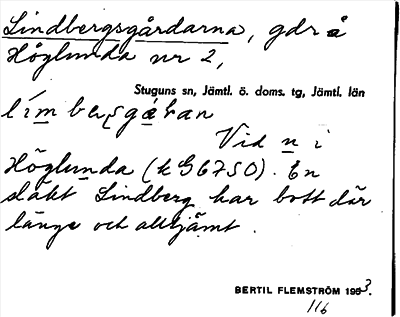 Lindbergsgårdarna, gdr å
Höglunda nr 2,
Stuguns sn, Jämtl. ö. doms. tg, Jämtl. län
Vid n i
Höglunda (k G6750). En
släkt Lindberg har bott där
länge och alltjämt.
BERTIL FLEMSTRÖM 1963.
116